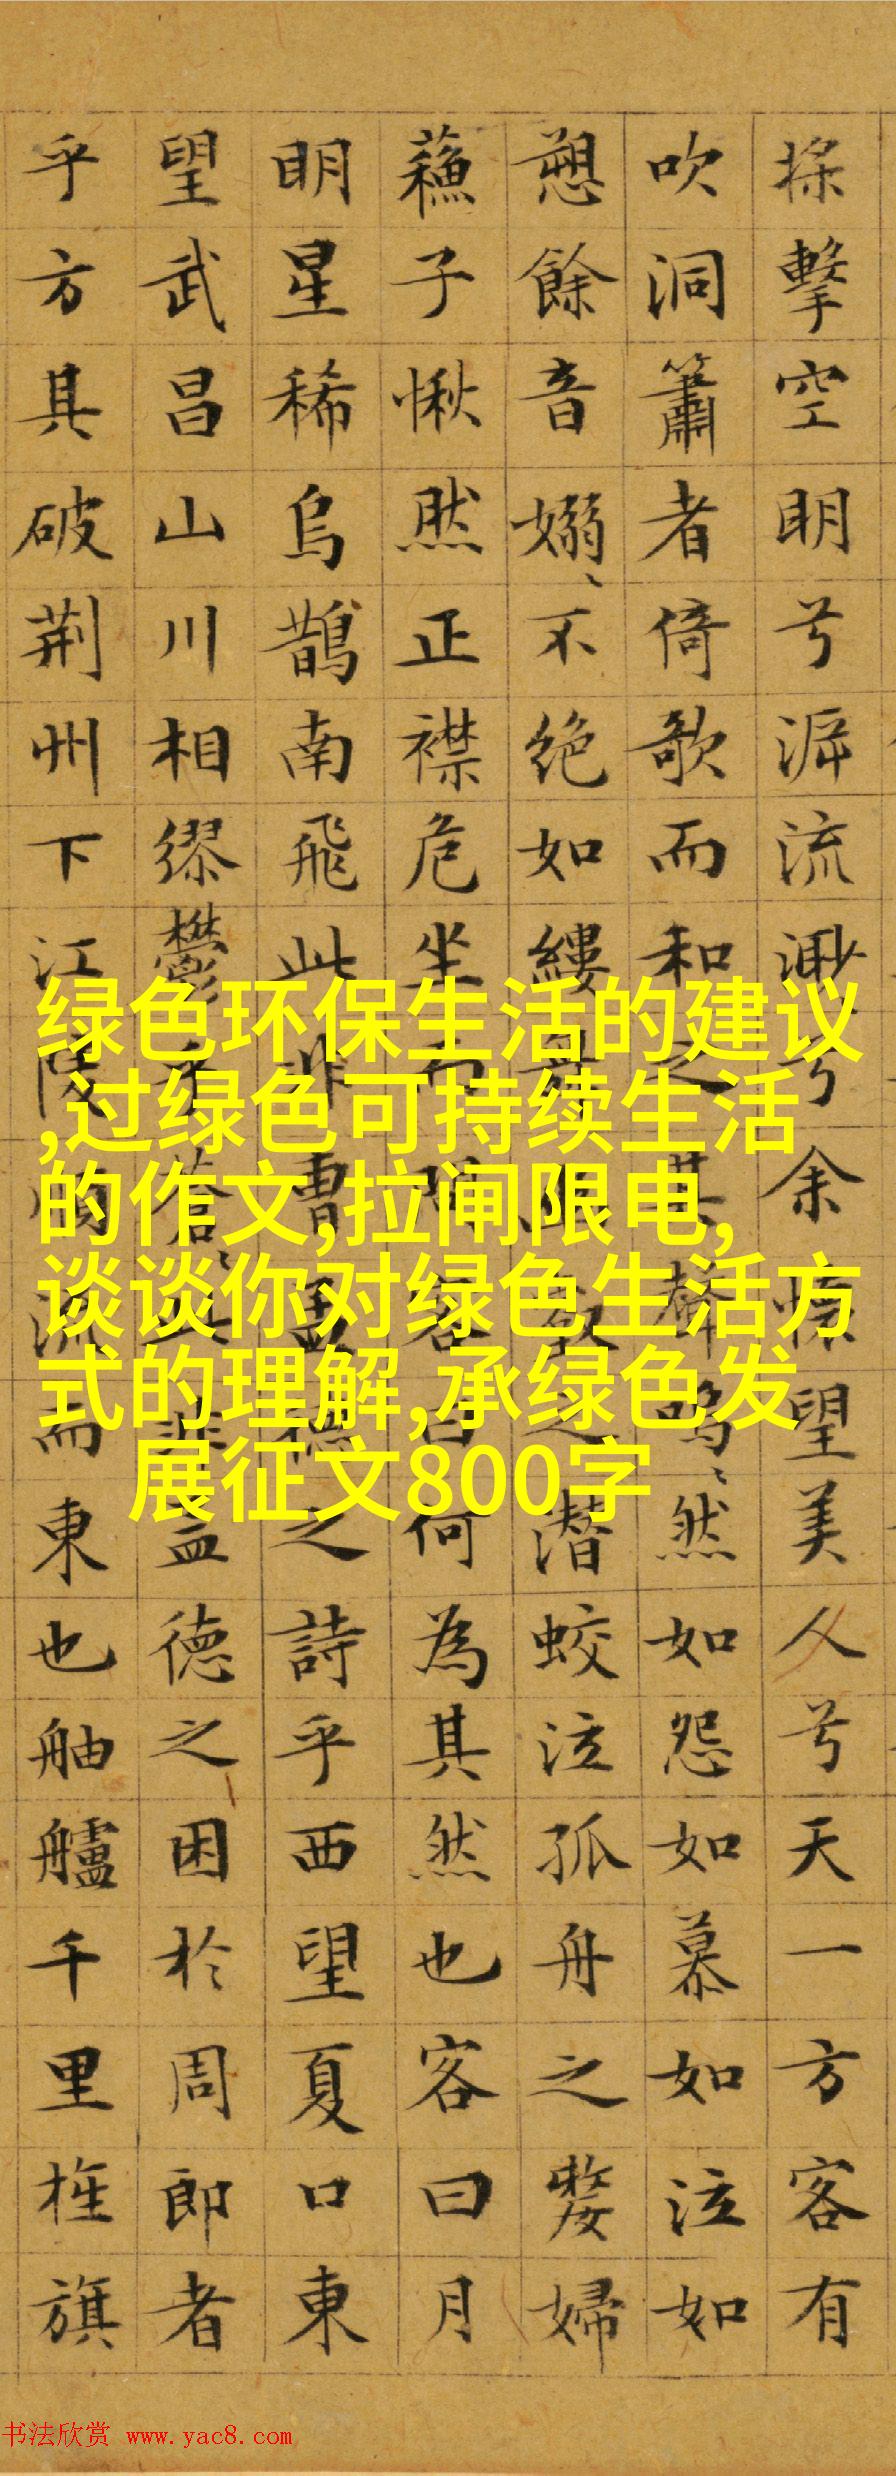 擊空明兮泝流渺兮余懷望美人兮天一方客有
吹洞簫者倚歌而和之其聲嗚〻然如怨如慕如泣如
愬餘音嫋〻不絕如縷舞幽壑之潛蛟泣孤舟之嫠婦
蘇子愀然正襟危坐而問客曰何為其然也客曰月
明星稀烏鵲南飛此非曹孟德之詩乎西望夏口東
望武昌山川相繆鬱乎蒼〻此非孟德之困於周郎者
乎方其破荊州下江陵順流而東也舳艫千里旌旗
绿色环保生活的建议
,过绿色可持续生活
的作文,拉闸限电,
谈谈你对绿色生活方
式的理解,承绿色发
展征文800字
书法欣赏 www.yac8.com